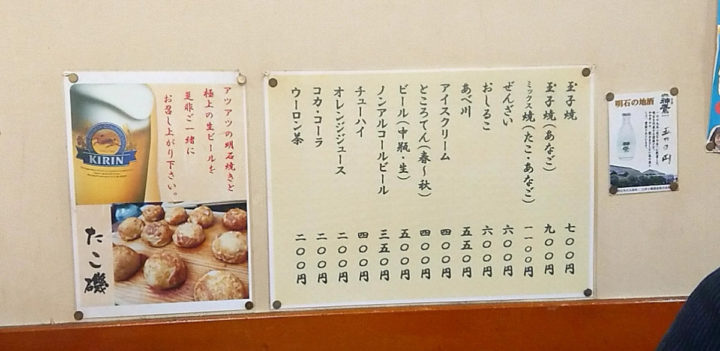 アツアツの明石焼きと
極上の生ビールを
是非ご一緒に
お召し上がり下さい。
KIRIN
たこ磯
玉子焼 七〇〇円
玉子焼(あなご) 九〇〇円
ミックス焼(たこ・あなご) 一一〇〇円
ぜんざい 六〇〇円
おしるこ 六〇〇円
あべ川 五五〇円
アイスクリーム 四〇〇円
ところてん(春〜秋) 四〇〇円
ビール(中瓶・生) 五〇〇円
ノンアルコールビール 三五〇円
チューハイ 四〇〇円
オレンジジュース 二〇〇円
コカ・コーラ 二〇〇円
ウーロン茶 二〇〇円
明石の地酒
神鷹